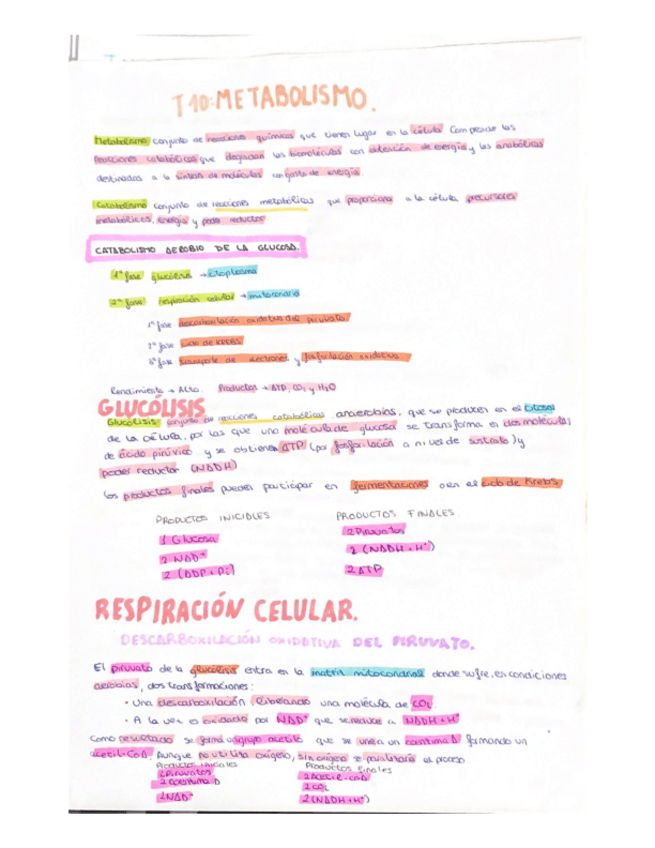 T 10: METABOLISMO.
Metabolismo conjunto de reacciones químicas que tienen lugar en la célula. Comprende las
reacciones catabólicas que degradan las biomoléculas con obtención de energía y las anabólicas
destinadas a la síntesis de moléculas con gasto de energía.
Catabolismo conjunto de reacciones metabólicas que proporciona a la célula precursores
metabólicos, energía y poder reductor.
CATABOLISMO AEROBIO DE LA GLUCOSA.
1ª fase glucólisis → citoplasma
2ª fase respiración celular → mitocondria
1ª fase descarboxilación oxidativa del piruvato
2ª fase ciclo de KREBS
3ª fase transporte de electrones y fosforilación oxidativa.
Rendimiento → Alto. Productos → ATP, CO₂ y H₂O
GLUCÓLISIS
Glucólisis conjunto de reacciones catabólicas anaerobias, que se producen en el citosol
de la célula, por las que una molécula de glucosa se transforma en dos moléculas
de ácido pirúvico y se obtienen ATP (por fosforilación a nivel de sustrato) y
poder reductor (NADH)
Los productos finales pueden participar en fermentaciones o en el ciclo de Krebs.
PRODUCTOS INICIALES PRODUCTOS FINALES
1 Glucosa 2 Piruvatos
2 NAD⁺ 2 (NADH + H⁺)
2 (ADP + Pi) 2 ATP
RESPIRACIÓN CELULAR.
DESCARBOXILACIÓN OXIDATIVA DEL PIRUVATO.
El piruvato de la glucólisis entra en la matriz mitocondrial donde sufre, en condiciones
aerobias, dos transformaciones:
• Una descarboxilación liberando una molécula de CO₂
• A la vez es oxidado por NAD⁺ que se reduce a NADH + H⁺
Como resultado se forma un grupo acetilo que se une a un coenzima A formando un
acetil-CoA. Aunque no utiliza oxígeno, sin oxígeno se paralizaría el proceso
Productos iniciales Productos finales
2 Piruvatos 2 Acetil-CoA
2 Coenzima A 2 CO₂
2 NAD⁺ 2 (NADH + H⁺)